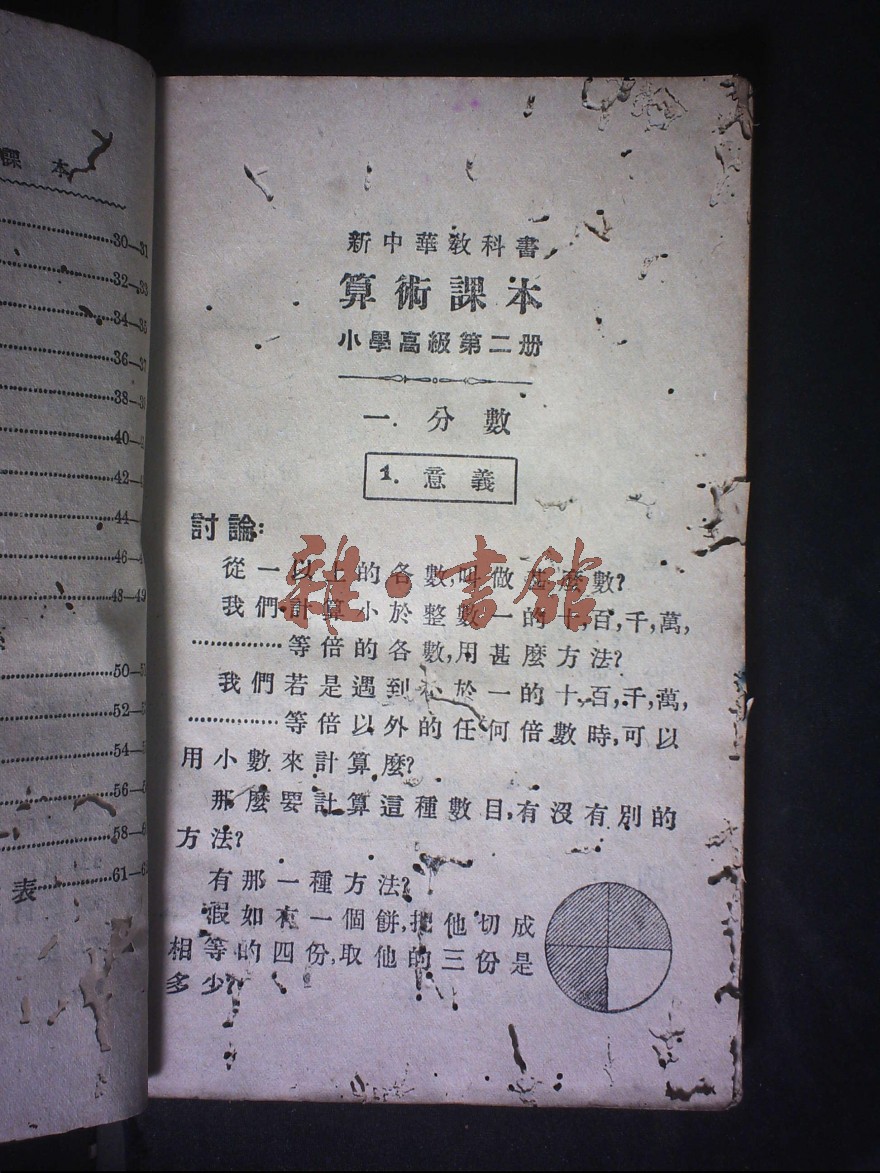 課本
30—31
32—33
34—35
36—37
38—39
40—
42—
44—
46—
48—49
50—
52—
54—
56—
58—
表 61—
新中華教科書
算術課本
小學高級第二册
一. 分數
1. 意義
討論:
從一以上的各數,叫做甚麼數?
我們計算小於整數一的十,百,千,萬,
…………等倍的各數,用甚麼方法?
我們若是遇到小於一的十,百,千,萬,
…………等倍以外的任何倍數時,可以
用小數來計算麼?
那麼要計算這種數目,有沒有別的
方法?
有那一種方法?
假如有一個餅,把他切成
相等的四份,取他的三份是
多少?
雅·書館